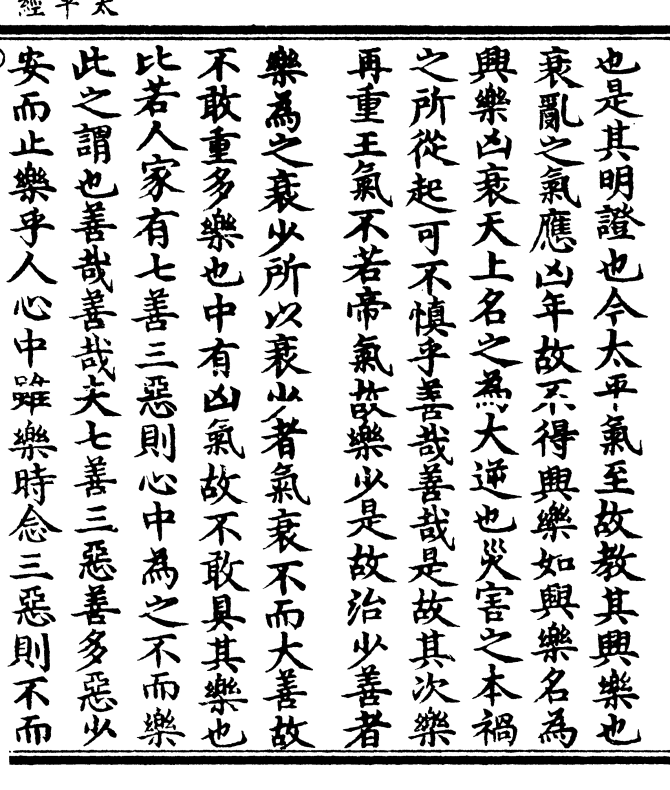 太平經
也是其明證也今太平氣至故教其興樂也
衰亂之氣應凶年故不得興樂如興樂名為
興樂凶衰天上名之為大逆也災害之本禍
之所從起可不慎乎善哉善哉是故其次樂
再重王氣不若帝氣故樂少是故治少善者
樂為之衰少所以衰少者氣衰不而大善故
不敢重多樂也中有凶氣故不敢具其樂也
比若人家有七善三惡則心中為之不而樂
此之謂也善哉善哉夫七善三惡善多惡少
安而止樂乎人心中雖樂時念三惡則不而